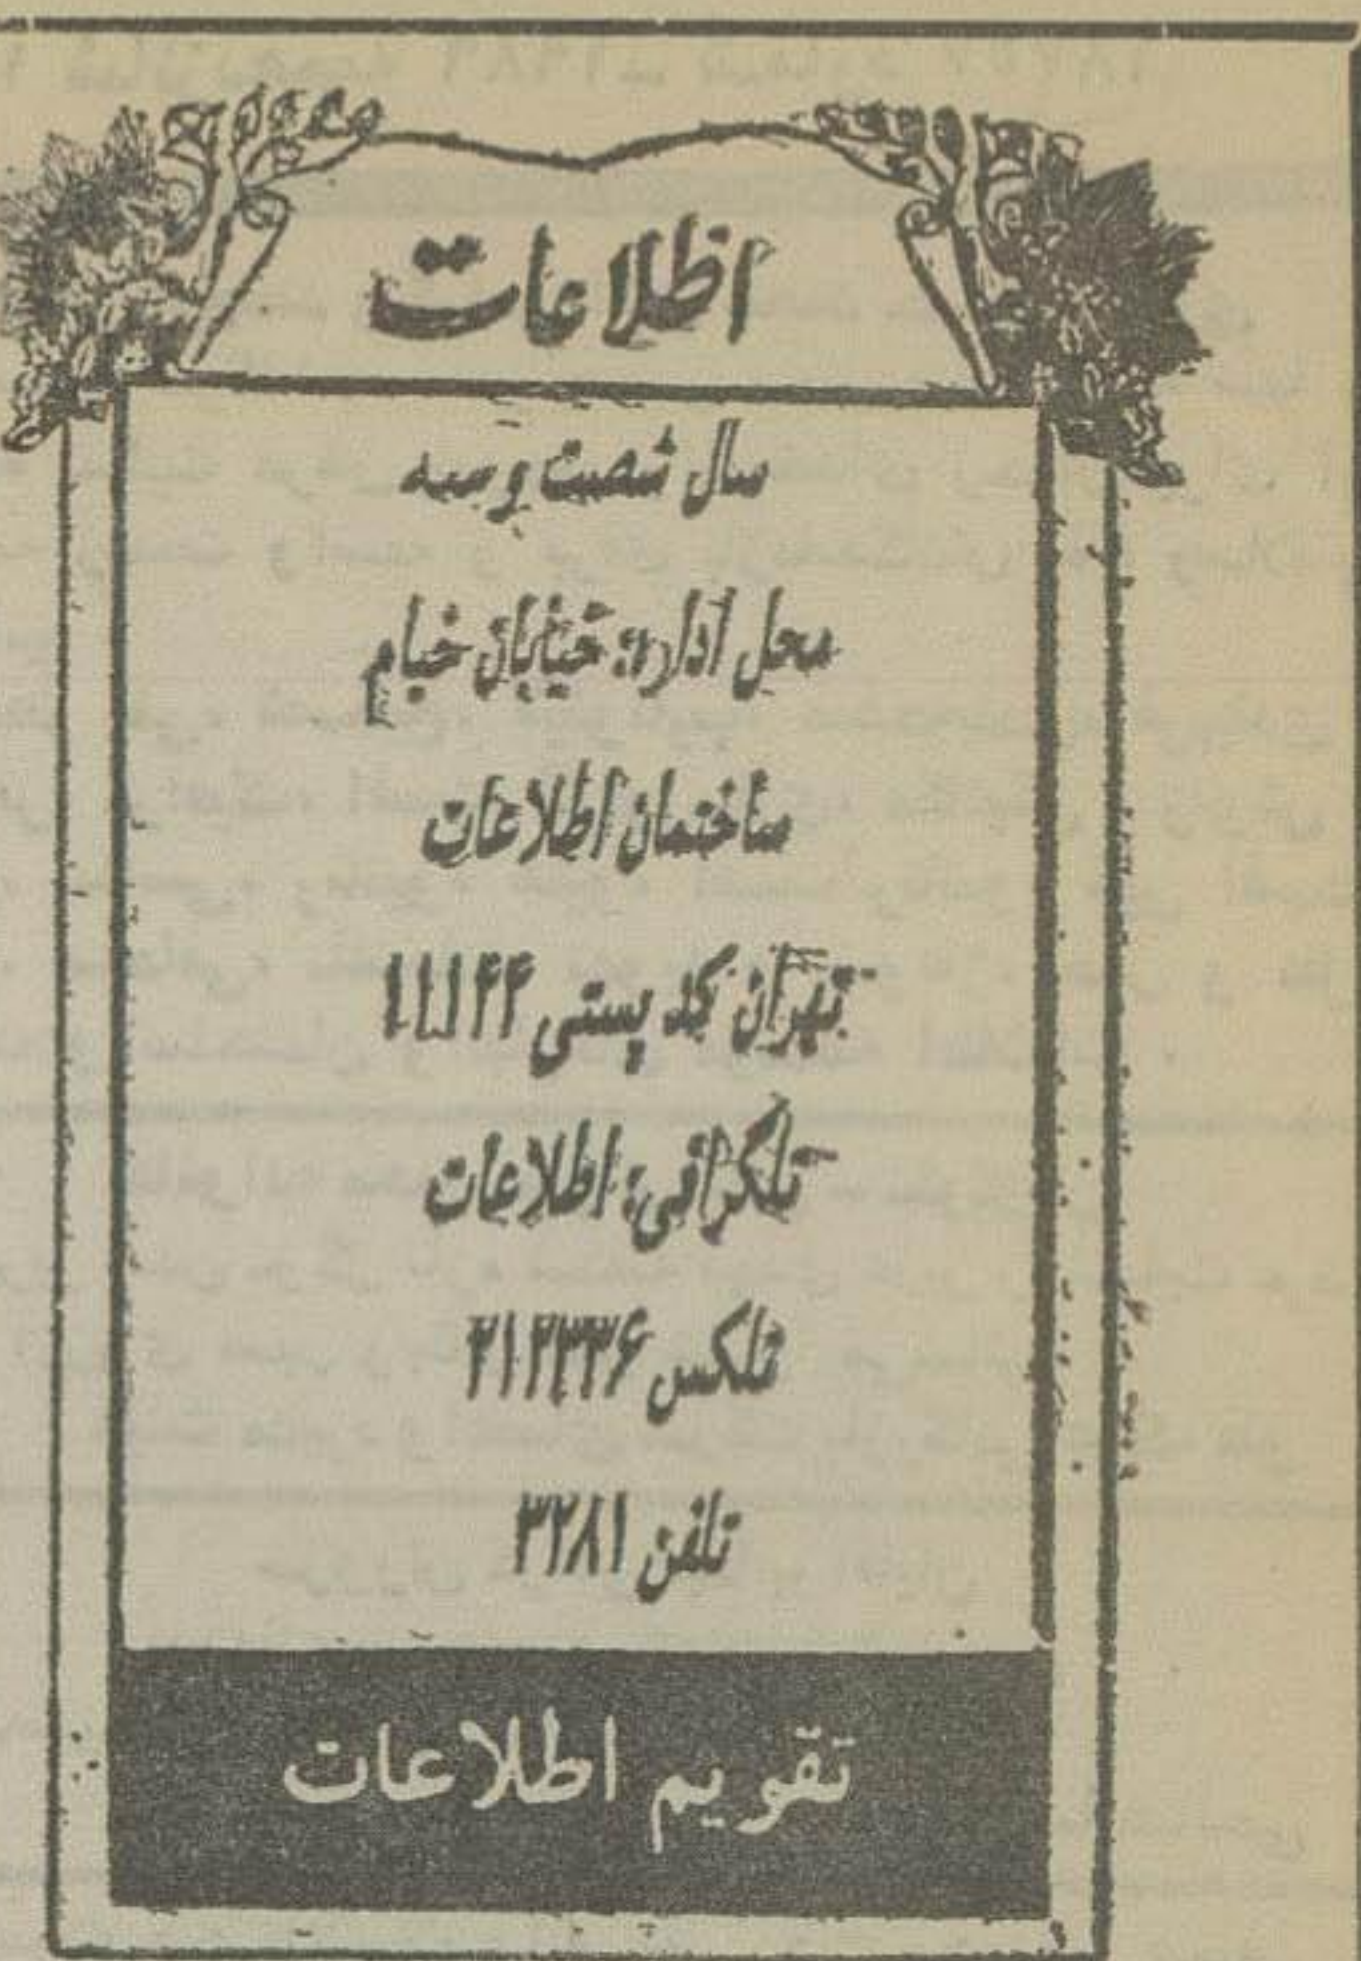 اطلاعات
سال شصت و سه
محل اداره: خیابان خیام
ساختمان اطلاعات
تهران کد پستی ۱۱۱۴۴
تلگرافی: اطلاعات
تلکس ۲۱۲۳۳۶
تلفن ۳۲۸۱
تقویم اطلاعات